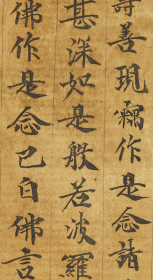 壽善現竊作是念諸
甚深如是般若波羅
佛作是念已白佛言